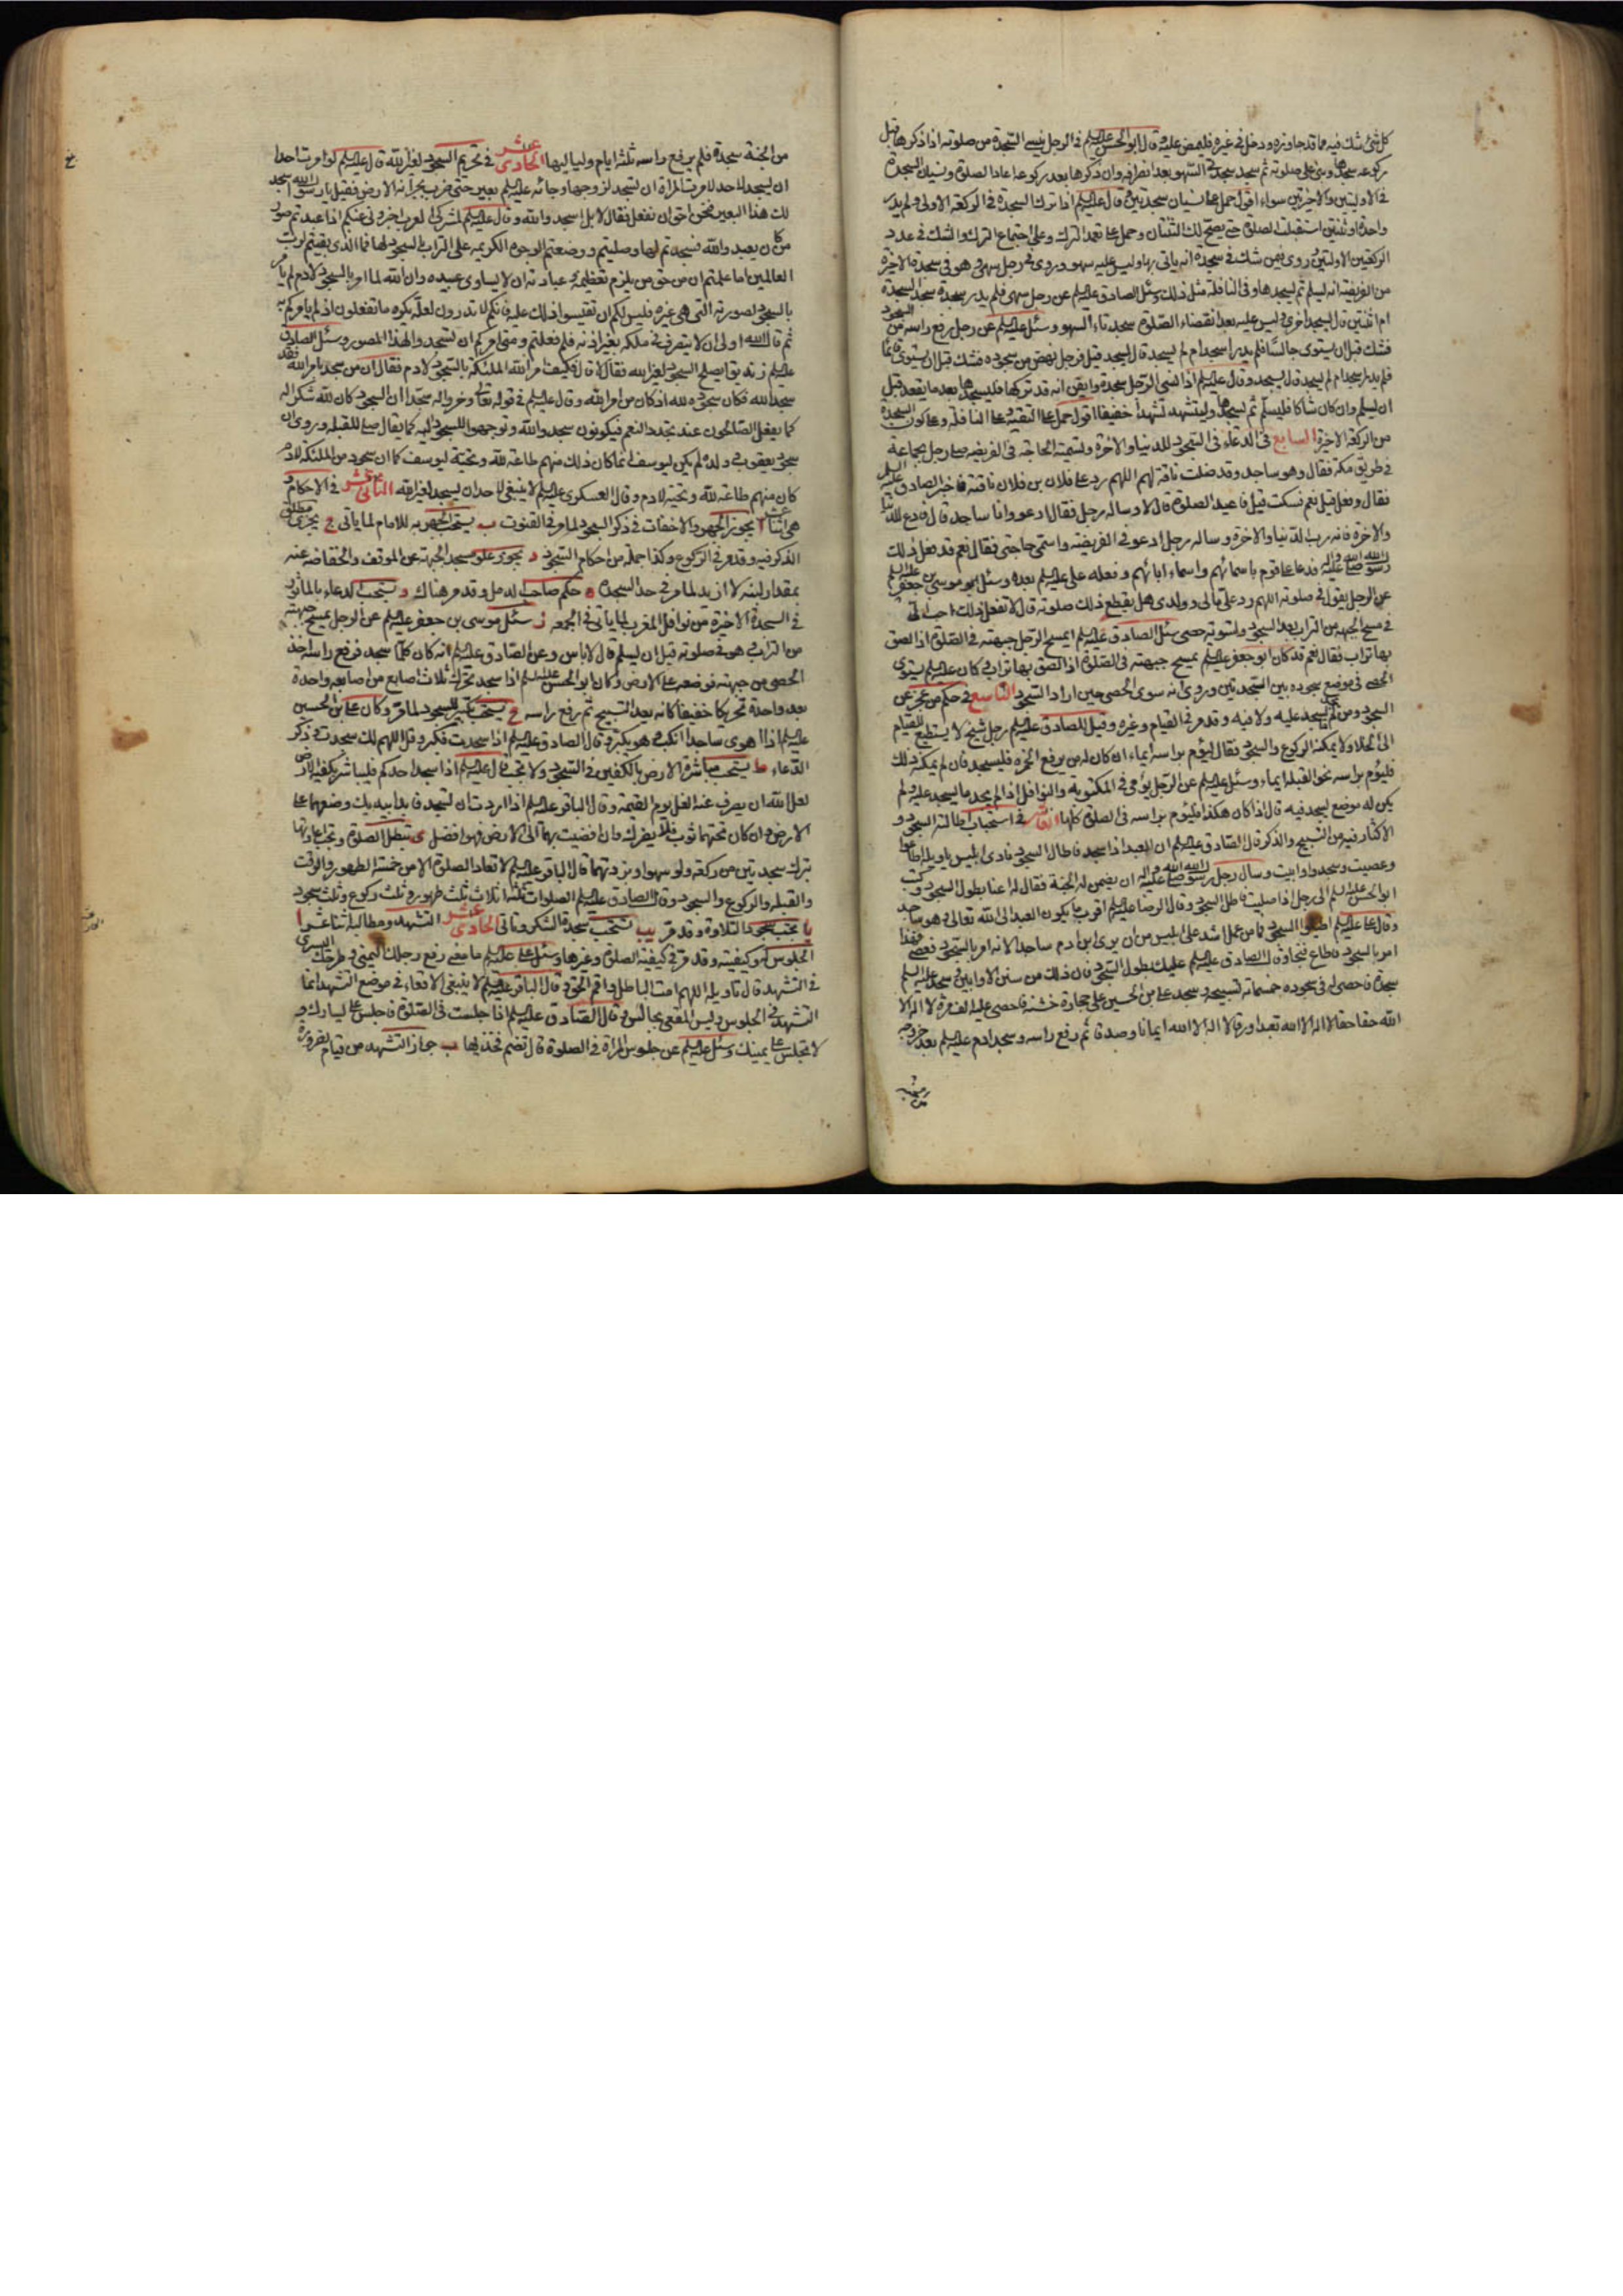 كل شئ شك فيه مما قد جاوزه ودخل في غيره فليمض عليه وقال ابو الحسن عليه السلم في الرجل ينسى السجدة من صلوته اذا ذكرها قبل
ركوعه سجدها وبنى على صلوته ثم سجد سجدتي السهو بعد انصرافه وان ذكرها بعد ركوعه اعاد الصلوة ونسيان السجدة
في الاوليتين والاخيرتين سواء اقول حمل على نسيان سجدتين وقال عليه السلم اذا ترك السجدة في الركعة الاولى ولم يدر
واحدة او ثنتين استقبلت الصلوة حتى يصح لك الثنتان وحمل على تعمد الترك وعلى اجتماع الترك والشك في عدد
الركعتين الاوليتين وروى فيمن شك في سجدة انه ياتي بها وليس عليه سهو وروى في رجل سهى وهو في سجدة الاخيرة
من الفريضة انه يسلم ثم يسجدها وفي النافلة مثل ذلك وسئل الصادق عليه السلم عن رجل سهى فلم يدر سجدة سجد
ام ثنتين قال يسجد اخرى وليس عليه بعد انقضاء الصلوة سجدتا السهو وسئل عليه السلم عن رجل رفع راسه من السجود
فشك قبل ان يستوي جالسا فلم يدر اسجد ام لم يسجد قال يسجد قيل فرجل نهض من سجوده فشك قبل ان يستوي قائما
فلم يدر اسجد ام لم يسجد قال يسجد وقال عليه السلم اذا نسي الرجل سجدة وايقن انه قد تركها فليسجدها بعد ما يقعد قبل
ان يسلم وان كان شاكا فليسلم ثم يسجدها وليتشهد تشهدا خفيفا اقول حمل على التقية وعلى النافلة وعلى كون السجدة
من الركعة الاخيرة السابع في الدعاء في السجود للدنيا والاخرة وتسمية الحاجة في الفريضة صلى رجل بجماعة
في طريق مكة فقال وهو ساجد وقد ضلت ناقة لهم اللهم رد على فلان بن فلان ناقته فاخبر الصادق عليه السلم
فقال وفعل قيل نعم فسكت قيل فاعيد الصلوة قال لا وساله رجل فقال ادعو وانا ساجد قال فادع للدنيا
والاخرة فانه رب الدنيا والاخرة وساله رجل ادعو في الفريضة واسمي حاجتي فقال نعم قد فعل ذلك
رسول الله صلى الله عليه واله فدعا على قوم باسمائهم واسماء ابائهم وفعله علي عليه السلم بعده وسئل موسى بن جعفر عليه السلم
عن الرجل يقول في صلوته اللهم رد علي مالي وولدي هل يقطع ذلك صلوته قال لا تفعل ذلك احب الي
في مسح الجبهة من التراب بعد السجود وتسوية حصى سئل الصادق عليه السلم ايمسح الرجل جبهته في الصلوة اذا لصق
بها تراب فقال نعم قد كان ابو جعفر عليه السلم يمسح جبهته في الصلوة اذا لصق بها تراب وكان عليه السلم يسوي
الحصى في موضع سجوده بين السجدتين وروى انه سوى الحصى حين اراد السجود التاسع في حكم من عجز عن
السجود ومن لم يجد ما يسجد عليه ولا فيه وقد مر في القيام وغيره وقيل للصادق عليه السلم رجل شيخ لا يستطيع القيام
الى الخلا ولا يمكنه الركوع والسجود فقال ليؤم براسه ايماء ان كان له من يرفع الخمرة فليسجد فان لم يمكنه ذلك
فليؤم براسه نحو القبلة ايماء وسئل عليه السلم عن الرجل يؤمي في المكتوبة والنوافل اذا لم يجد ما يسجد عليه ولم
يكن له موضع يسجد فيه قال اذا كان هكذا فليؤم براسه في الصلوة كلها العاشر في استحباب اطالة السجود و
الاكثار فيه من التسبيح والذكر قال الصادق عليه السلم ان العبد اذا سجد فاطال السجود نادى ابليس يا ويله اطاعوا
وعصيت وسجدوا وابيت وسال رجل رسول الله صلى الله عليه واله ان يضمن له الجنة فقال له اعنا بطول السجود وكتب
ابو الحسن عليه السلم الى رجل اذا صليت فاطل السجود وقال الرضا عليه السلم اقرب ما يكون العبد الى الله تعالى وهو ساجد
وقال علي عليه السلم اطيلوا السجود فما من عمل اشد على ابليس من ان يرى ابن ادم ساجدا لانه امر بالسجود فعصى وهذا
امر بالسجود فاطاع فنجا وقال الصادق عليه السلم عليك بطول السجود فان ذلك من سنن الاوابين وسجد عليه السلم
سجدة فاحصى له في سجوده خمسمائة تسبيحة وسجد علي بن الحسين على حجارة خشنة فاحصى عليه الف مرة لا اله الا
الله حقا حقا لا اله الا الله تعبدا ورقا لا اله الا الله ايمانا وصدقا ثم رفع راسه وسجد ادم عليه السلم بعد خروجه
من الجنة سجدة فلم يرفع راسه ثلثة ايام ولياليها الحادى عشر في تحريم السجود لغير الله قال عليه السلم لو امرت احدا
ان يسجد لاحد لامرت المراة ان تسجد لزوجها وجائه عليه السلم بعير حتى ضرب بجرانه الارض فقيل يا رسول الله اسجد
لك هذا البعير فنحن احق ان نفعل فقال لا بل اسجدوا لله وقال عليه السلم لمشركي العرب اخبروني عنكم اذا عبدتم صور
من كان يعبد الله فسجدتم لها وصليتم ووضعتم الوجوه الكريمة على التراب بالسجود لها فما الذي بقيتم لرب
العالمين اما علمتم ان من حق من يلزم تعظيمه وعبادته ان لا يساوى عبيده وان الله لما امر بالسجود لادم لم يامر
بالسجود لصورته التي هي غيره فليس لكم ان تقيسوا ذلك عليه فانكم لا تدرون لعله يكره ما تفعلون اذ لم يامركم به
ثم قال الله اولى ان لا يتصرف في ملكه بغير اذنه فلم فعلتم ومتى امركم ان تسجدوا لهذا الصور وسئل الصادق
عليه السلم زنديق ايصلح السجود لغير الله فقال لا قال فكيف امر الله الملئكة بالسجود لادم فقال ان من سجد بامر الله فقد
سجد لله فكان سجوده لله اذ كان من امر الله وقال عليه السلم في قوله تعالى وخروا له سجدا ان السجود كان لله شكرا له
كما يفعل الصالحون عند تجدد النعم فيكونون سجدوا لله وتوجهوا للسجود اليه كما يقال صلى للقبلة وروى ان
سجود يعقوب وولده لم يكن ليوسف انما كان ذلك منهم طاعة لله وتحية ليوسف كما ان سجود من الملئكة لادم
كان منهم طاعة لله وتحية لادم وقال العسكري عليه السلم لا ينبغي لاحد ان يسجد لغير الله الثاني عشر في الاحكام و
هي اثنا عشر ا يجوز الجهر والاخفات في ذكر السجود لما مر في القنوت ب يستحب الجهر به للامام لما ياتي ج يجزي مطلق
الذكر فيه وقد مر في الركوع وكذا جملة من احكام السجود د يجوز علو مسجد الجبهة عن الموقف وانخفاضه عنه
بمقدار لبنة لا ازيد لما مر في حد السجدة ه حكم صاحب الدمل وقد مر هناك و يستحب الدعاء بالماثور
في السجدة الاخيرة من نوافل المغرب لما ياتي في الجمعة ز سئل موسى بن جعفر عليه السلم عن الرجل يمسح جبهته
من التراب وهو في صلوته قبل ان يسلم قال لا باس وعن الصادق عليه السلم انه كان كلما سجد فرفع راسه اخذ
الحصى من جبهته فوضعه على الارض وكان ابو الحسن عليه السلم اذا سجد تحرك ثلاث اصابع من اصابعه واحدة
بعد واحدة تحريكا خفيفا كانه يعد التسبيح ثم رفع راسه ح يستحب تكبير للسجود لما مر وكان علي بن الحسين
عليه السلم اذا اهوى ساجدا انكب وهو يكبر وقال الصادق عليه السلم اذا سجدت فكبر وقل اللهم لك سجدت وذكر
الدعاء ط يستحب مباشرة الارض بالكفين في السجود ولا تجب قال عليه السلم اذا سجد احدكم فليباشر بكفيه الارض
لعل الله ان يصرف عنه الغل يوم القيمة وقال الباقر عليه السلم اذا اردت ان تسجد فابدا بيديك وضعهما على
الارض وان كان تحتهما ثوب فلا يضرك وان افضيت بهما الى الارض فهو افضل ى تبطل الصلوة وتجب اعادتها
بترك سجدتين من ركعة ولو سهوا وبزيادتهما قال الباقر عليه السلم لا تعاد الصلوة الا من خمسة الطهور والوقت
والقبلة والركوع والسجود وقال الصادق عليه السلم الصلوات ثلثة اثلاث ثلث طهور وثلث ركوع وثلث سجود
يا تجب سجود التلاوة وقد مر يب تستحب سجدة الشكر وياتي الحادى عشر التشهد ومطالبه اثنا عشر ا
الجلوس له وكيفيته وقد مر في كيفية الصلوة وغيرها وسئل علي عليه السلم ما معنى رفع رجلك اليمنى وطرحك اليسرى
في التشهد قال تاويله اللهم امت الباطل واقم الحق وقال الباقر عليه السلم لا ينبغي الاقعاء في موضع التشهد انما
التشهد في الجلوس وليس المقعي بجالس وقال الصادق عليه السلم اذا جلست في الصلوة فاجلس على يسارك و
لا تجلس على يمينك وسئل عليه السلم عن جلوس المراة في الصلوة قال تضم فخذيها ب جواز التشهد من قيام لضرورة